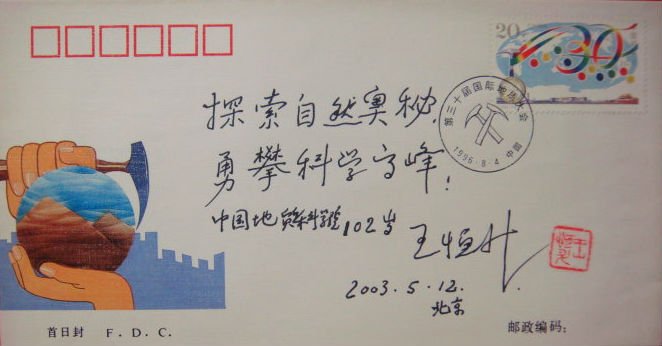 20
第三十届国际地质大会
1996·8·4 中国
探索自然奥秘,
勇攀科学高峰!
中国地质科学院 102岁
王恒升
2003.5.12.
北京
首日封 F.D.C.
邮政编码: